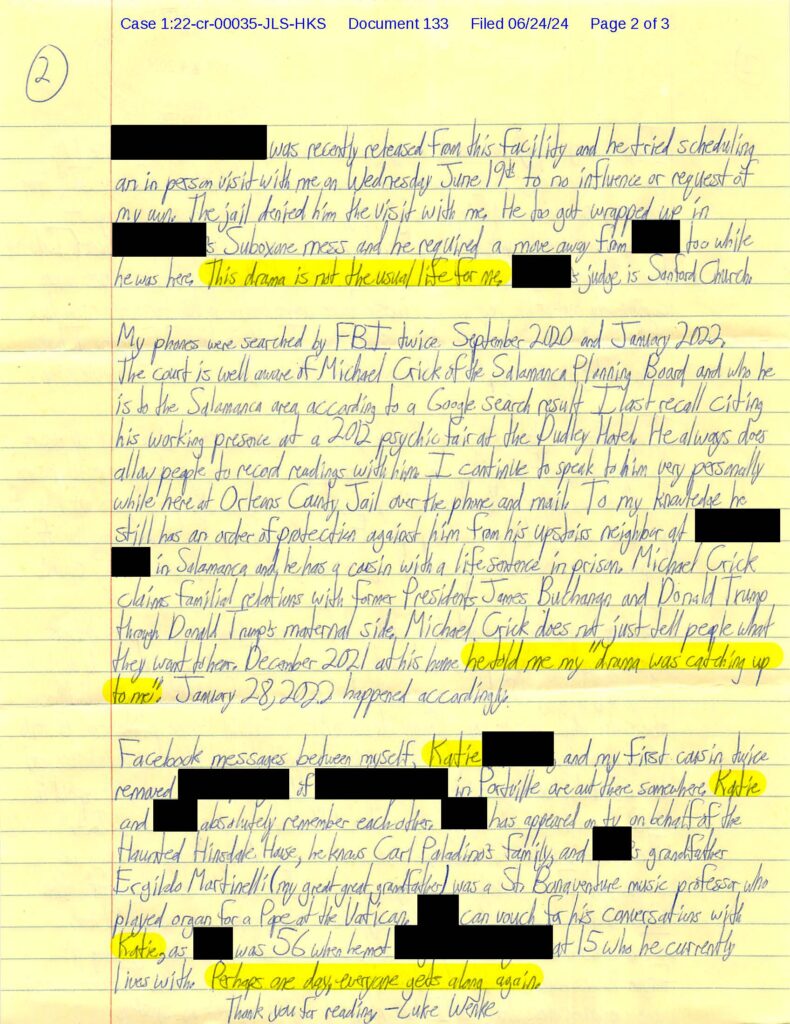 Case 1:22-cr-00035-JLS-HKS Document 133 Filed 06/24/24 Page 2 of 3
2
was recently released from this facility and he tried scheduling
an in person visit with me on Wednesday June 19th to no influence or request of
my own. The jail denied him the visit with me. He too got wrapped up in
's Suboxone mess and he required a move away from too while
he was here. This drama is not the usual life for me. 's judge is Sanford Church.
My phones were searched by FBI twice September 2020 and January 2022.
The court is well aware of Michael Crick of the Salamanca Planning Board and who he
is to the Salamanca area, according to a Google search result I last recall citing
his working presence at a 2012 psychic fair at the Dudley Hotel. He always does
allow people to record readings with him. I continue to speak to him very personally
while here at Orleans County Jail over the phone and mail. To my knowledge he
still has an order of protection against him from his upstairs neighbor at
in Salamanca and he has a cousin with a life sentence in prison. Michael Crick
claims familial relations with former Presidents James Buchanan and Donald Trump
through Donald Trump's maternal side. Michael Crick does not just tell people what
they want to hear. December 2021 at his home he told me my "drama was catching up
to me". January 28, 2022 happened accordingly.
Facebook messages between myself, Katie , and my first cousin twice
removed of in Portville are out there somewhere. Katie
and absolutely remember each other. has appeared on tv on behalf of the
Haunted Hinsdale House, he knows Carl Paladino's family, and 's grandfather
Ergildo Martinelli (my great great grandfather) was a St. Bonaventure music professor who
played organ for a Pope at the Vatican. can vouch for his conversations with
Katie, as was 56 when he met at 15 who he currently
lives with. Perhaps one day, everyone gets along again.
Thank you for reading, -Luke Wenke